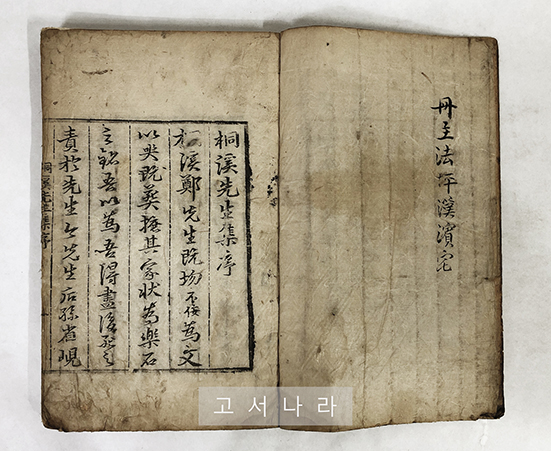 冊主法坪漢濱宅
桐溪先生集序
桐溪鄭先生既圽不佞為文
以哭既葬摭其家狀為樂石
之銘吾以為吾得盡後死之
責於先生先生后孫岐峴
桐溪先生集序
고서나라